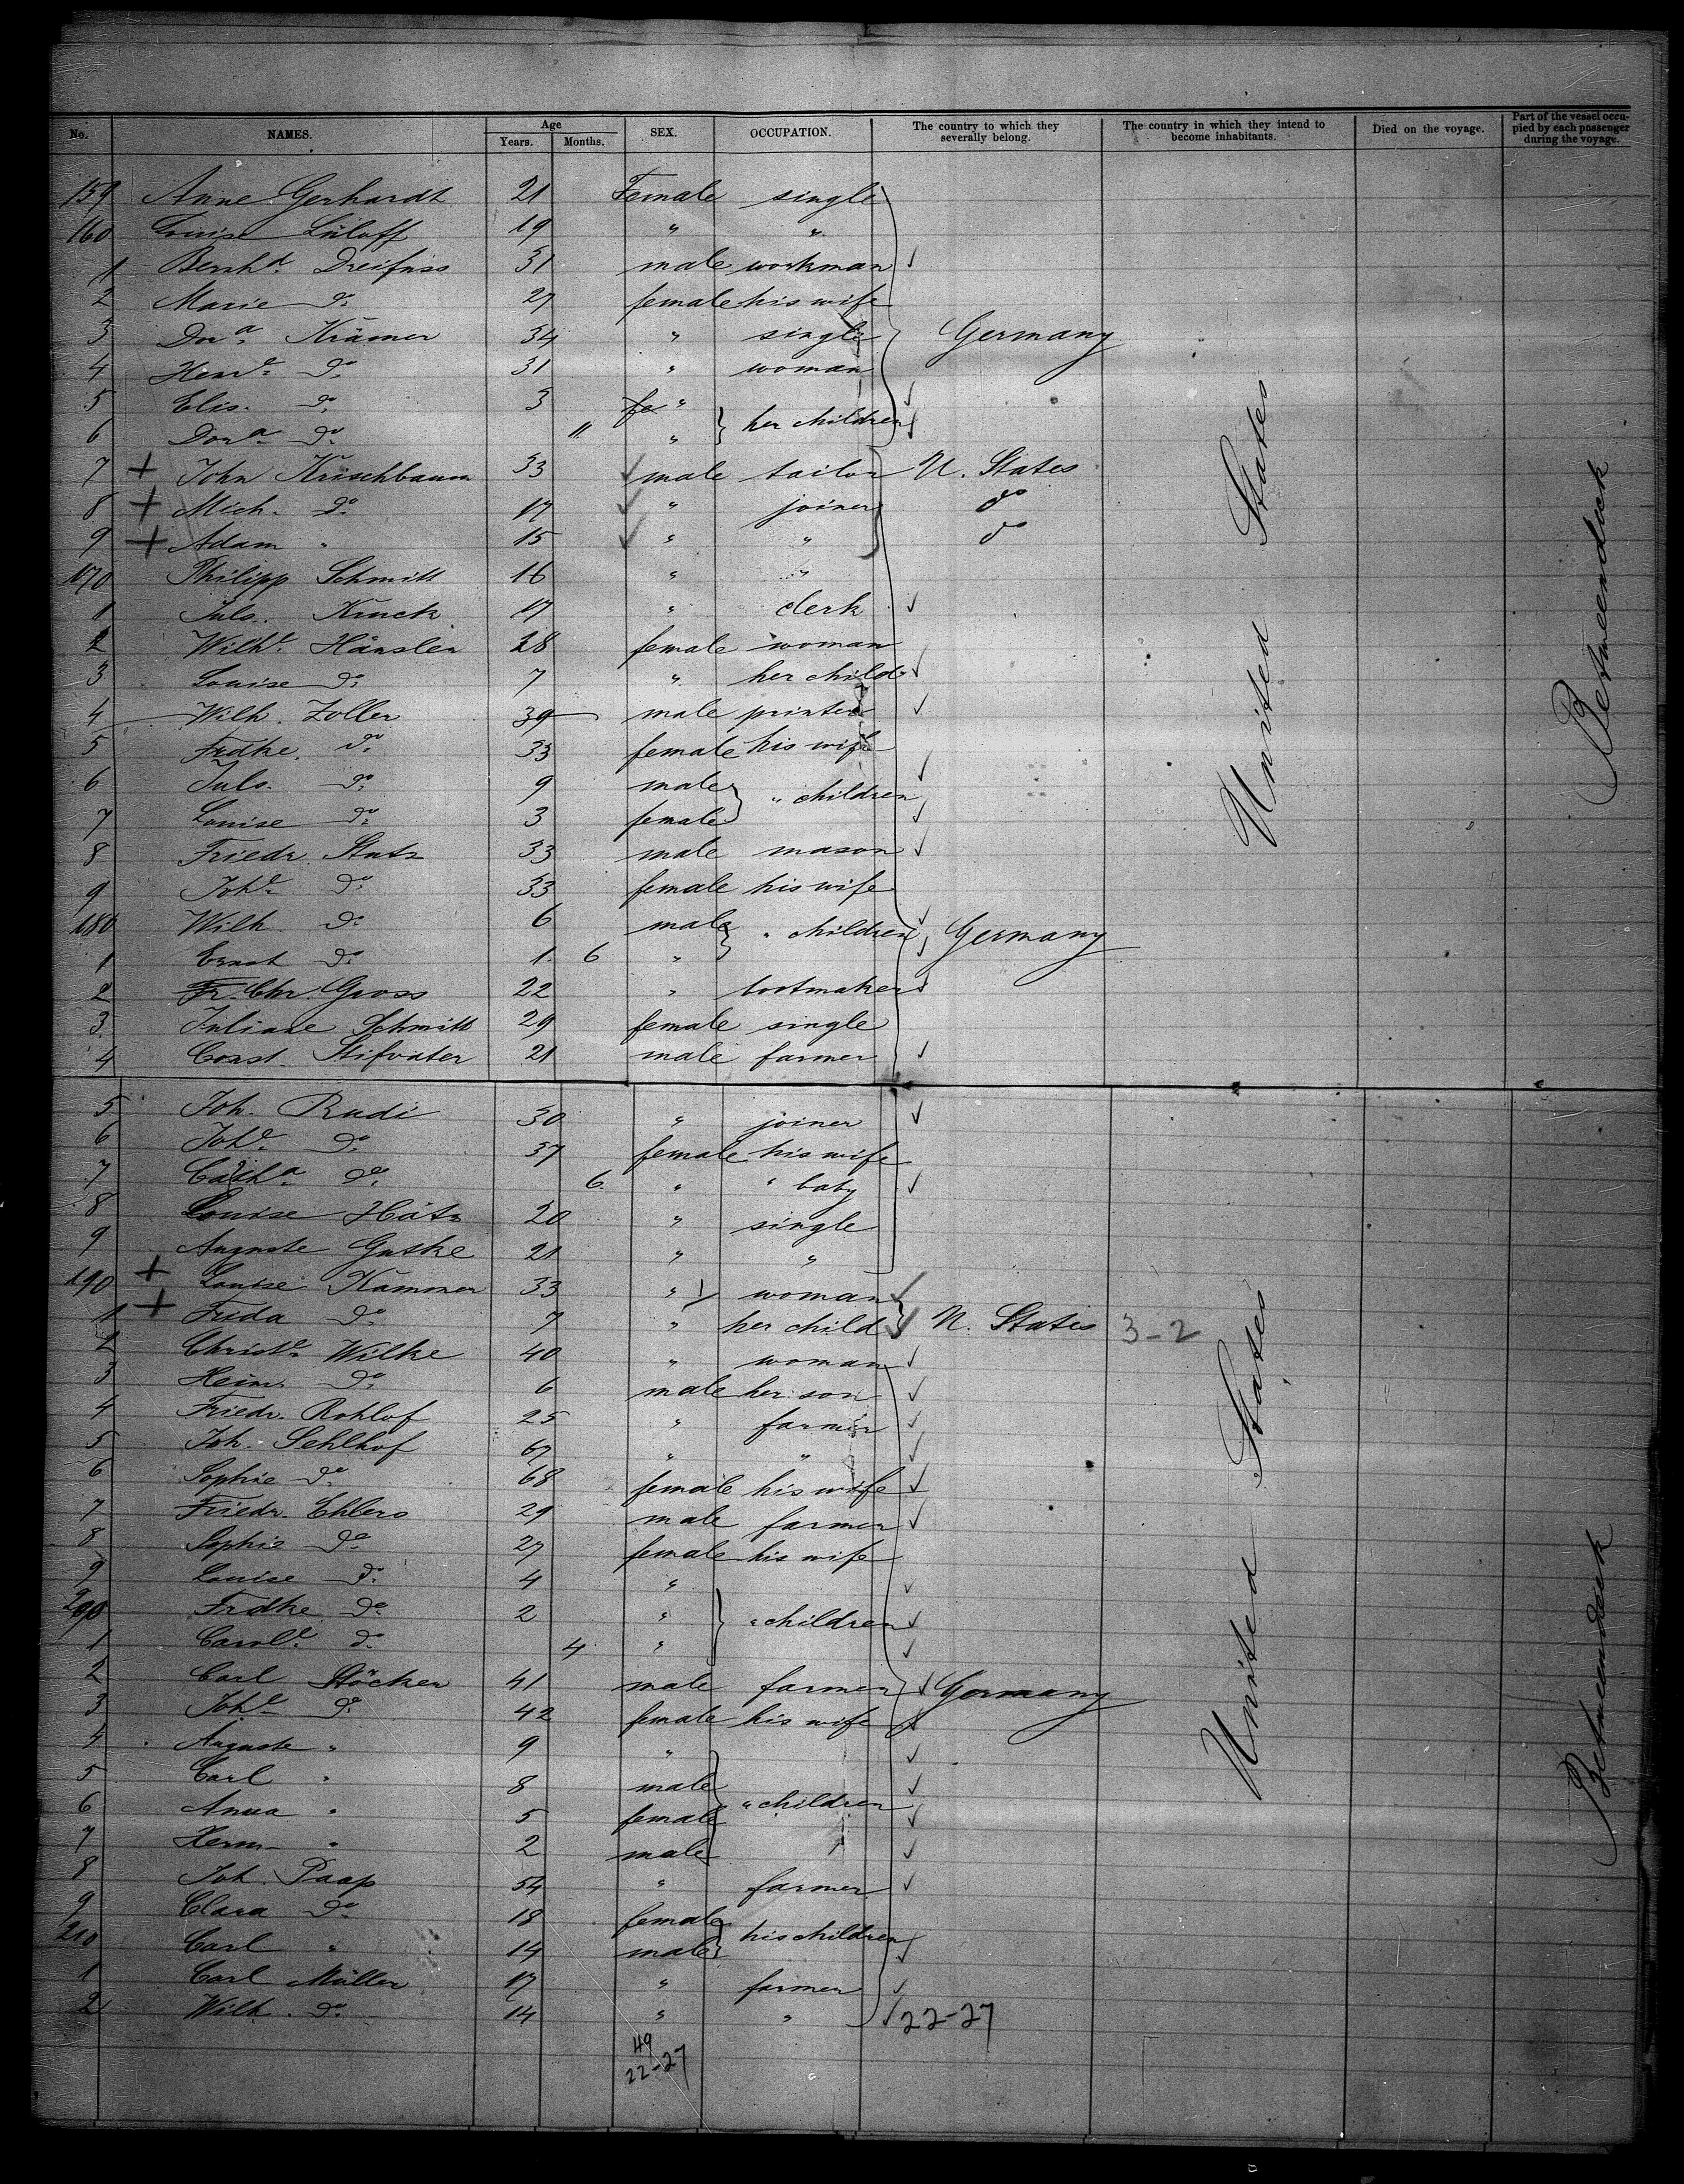 No. NAMES. Age Years. Months. SEX. OCCUPATION. The country to which they severally belong. The country in which they intend to become inhabitants. Died on the voyage. Part of the vessel occupied by each passenger during the voyage.
159 Anne Gerhardt 21 Female single
160 Louise Lüloff 19 " "
1 Bernhd Dreifuss 31 male workman
2 Marie do 27 female his wife
3 Dora Krämer 34 " single Germany
4 Henr. do 31 " woman
5 Elis. do 3 "
6 Dora do 11 " her children
7 + John Kirschbaum 33 male tailor U. States
8 + Mich. do 17 " joiner do
9 + Adam " 15 " " do
170 Philipp Schmitt 16 " "
1 Juls. Kruck 17 " clerk
2 Wilhe Hänsler 28 female woman
3 Louise do 7 " her child
4 Wilh. Zoller 39 male printer
5 Frdke. do 33 female his wife
6 Juls. do 9 male
7 Louise do 3 female " children
8 Friedr. Stutz 33 male mason
9 Johe do 33 female his wife
180 Wilh. do 6 male " children Germany
1 Ernst do 1 6 "
2 Fr. Chr. Gross 22 " bootmaker
3 Juliane Schmitt 29 female single
4 Const. Stifvater 21 male farmer
United States
Betweendeck
5 Joh. Rudi 30 " joiner
6 Johe do 37 female his wife
7 Catha do 6 " " baby
8 Louise Hätz 20 " single
9 Auguste Guthe 21 " "
190 + Louise Kammer 33 " woman
1 + Frida do 7 " her child U. States 3-2
2 Christe Wilke 40 " woman
3 Heinr. do 6 male her son
4 Friedr. Rohlof 25 " farmer
5 Joh. Sehlhof 67 " "
6 Sophie do 68 female his wife
7 Friedr. Ehlers 29 male farmer
8 Sophie do 27 female his wife
9 Louise do 4 "
200 Frdke do 2 " " children
1 Carole do 4 "
2 Carl Stöcker 41 male farmer Germany
3 Johe do 42 female his wife
4 Auguste " 9 "
5 Carl " 8 male
6 Anna " 5 female " children
7 Herm " 2 male
8 Joh. Paap 54 " farmer
9 Clara do 18 female
210 Carl " 14 male his children
1 Carl Müller 17 " farmer
2 Wilh. do 14 " " 22-27
49
22-27
United States
Betweendeck